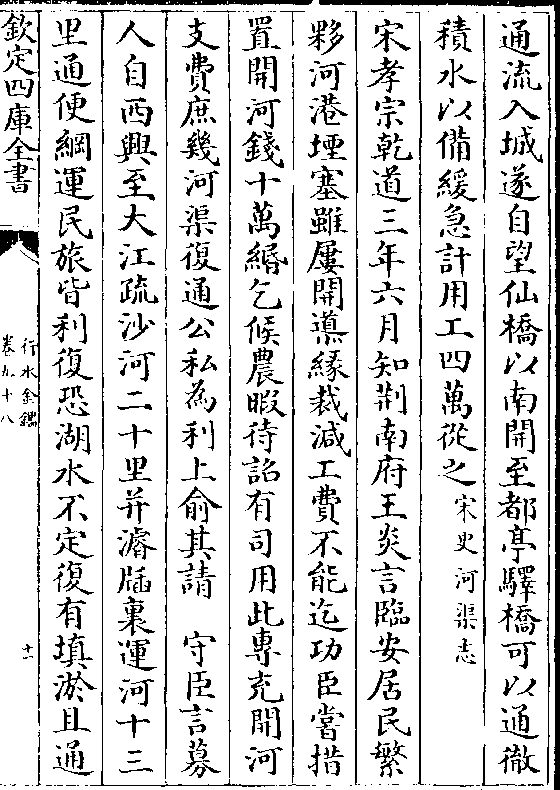 通流入城遂自望仙橋以南開至都亭驛橋可以通徹
積水以備緩急計用工四萬從之宋史河渠志
宋孝宗乾道三年六月知荆南府王炎言臨安居民繁
夥河港堙塞雖屢開導縁裁減工費不能迄功臣嘗措
置開河錢十萬緡乞候農暇待詔有司用此專充開河
支費庶幾河渠復通公私為利上俞其請 守臣言募
人自西興至大江疏沙河二十里并濬牐裏運河十三
里通便綱運民旅皆利復恐湖水不定復有填淤且通
欽定四庫全書
行水金鑑
卷九十八
十一